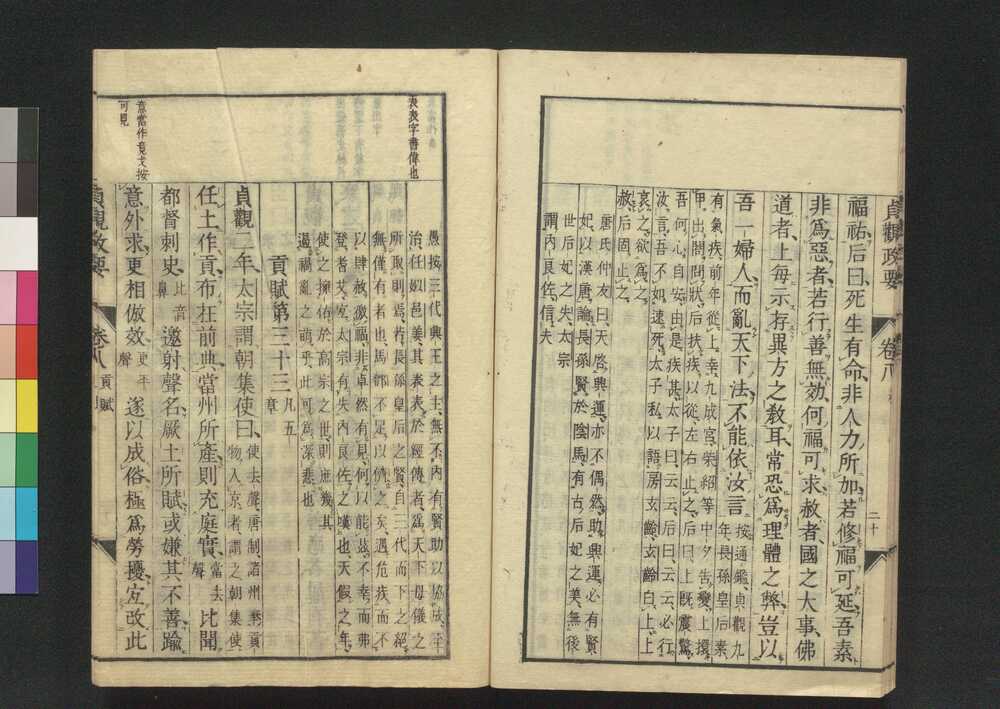 貞觀政要
卷八
二十
福祐后曰死生有命非人力所加若修福可延吾素
非爲惡者若行善無効何福可求赦者國之大事佛
道者上每示存異方之教耳常恐爲理體之弊豈以
吾一婦人而亂天下法不能依汝言
按通鑑貞觀九
年長孫皇后素
有氣疾前年從上幸九成宮柴紹等中夕告變上擐
甲出問狀后扶疾以從左右止之后曰上既震驚
吾何心自安由是疾甚太子曰云云后曰云云必行
汝言吾不如速死太子私以語房玄齡玄齡白上上
哀之欲爲之
赦后固止之
唐氏仲友曰天啓興運亦不偶然助興運必有賢
妃以漢唐論長孫賢於陰馬有古后妃之美無後
世后妃之失太宗
謂内良佐信夫
表表字書偉也
愚按三代興王之主無不内有賢助以協成
治任姒邑姜其表表於經傳者爲天下母儀之
所取則焉若長孫皇后之賢自三代而下之絕
無僅有者也馬鄧不足以儕之矣遇危疾而不
以肆赦徼福非卓然有見何以能茲不幸而弗
登耆艾宜太宗有失内良佐之嘆也天假之年
使之擁佑於高宗之世則庶幾其
遏禍亂之萌乎此可爲深悲也
貢賦第三十三
凡五
章
貞觀二年太宗謂朝集使曰
使去聲唐制諸州貢
物入京者謂之朝集使
任土作貢布在前典當州所產則充庭實
當去
聲
比聞
都督刺史
比音
鼻
邀射聲名厥土所賦或嫌其不善踰
意外求更相倣效
更平
聲
遂以成俗極爲勞擾宜改此
意當作竟戈按
可見
貞觀政要
卷八
貢賦